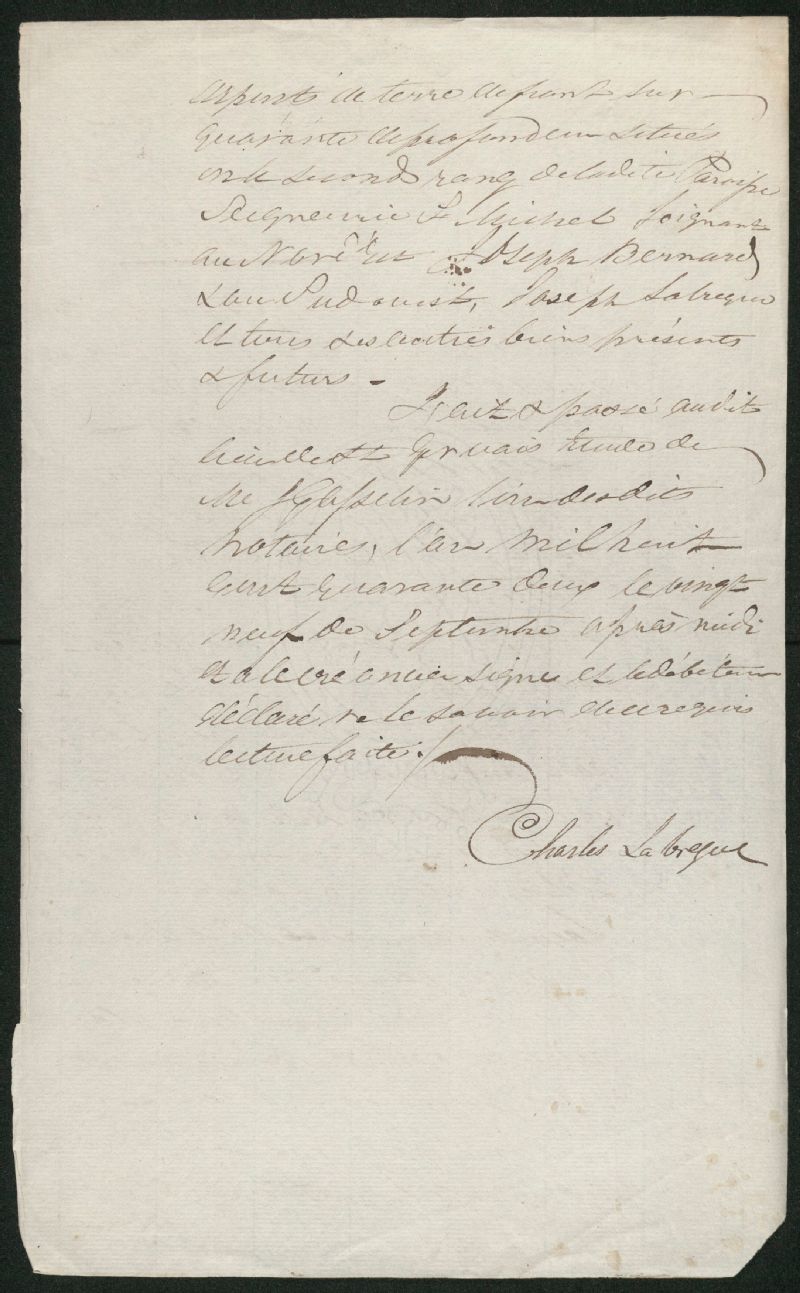 arpents de terre defront sur
quarante deprofondeur situés
en le second rang deladite Paroisse
Seigneurie St Michel Joignant
au Nord Est à Joseph Bernard
& au Sud ouest, Joseph Labreque
et tous ses autres biens présents
& futurs -
Fait & passé audit
lieu de St Gervais Etude de
Me J Gosselin l'un desdits
notaires, l'an mil huit
cent quarante deux le vingt
neuf de Septembre après midi
et a le créancier signé et le débiteur
déclaré ne le savoir de ce requis
lecture faite ./
Charles Labreque